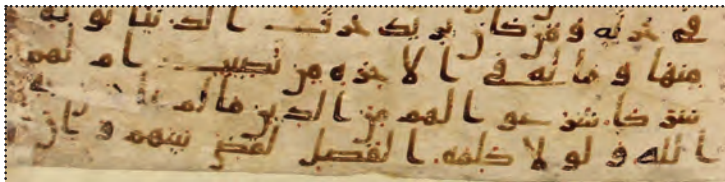 في حرثه ومن كان يريد حرث الدنيا نوته
منها وما له في الاخره من نصيب ام لهم
شركا شرعوا لهم من الدين ما لم
الله ولولا كلمه الفصل لقضي بينهم وان